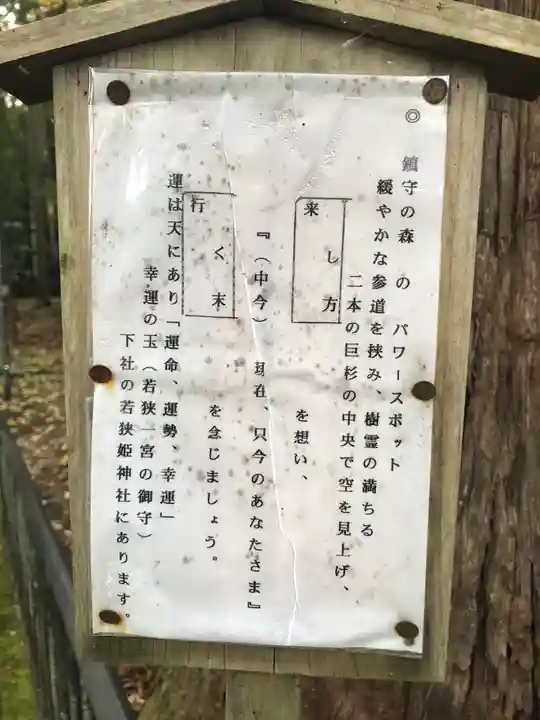 ◎ 鎮守の森 の パワースポット
緩やかな参道を挟み、樹霊の満ちる
二本の巨杉の中央で空を見上げ、
来し方 を想い、
『(中今) 現在、只今のあなたさま』
行く末 を念じましょう。
運は天にあり「運命、運勢、幸運」
幸運の玉(若狭一宮の御守)
下社の若狭姫神社にあります。